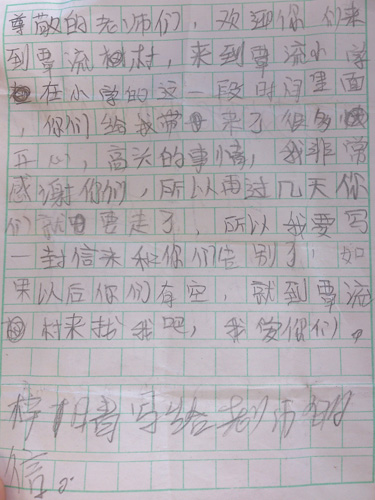 尊敬的老师们，欢迎你们来
到覃流村，来到覃流小学
在小学的这一段时间里面
，你们给我带来了很多
开心，高头的事情，我非常
感谢你们，所以再过几天你
们就要走了，所以我要写
一封信来和你们告别了，如
果以后你们有空，就到覃流
村来找我吧，我爱你们。
写给老师的
信。